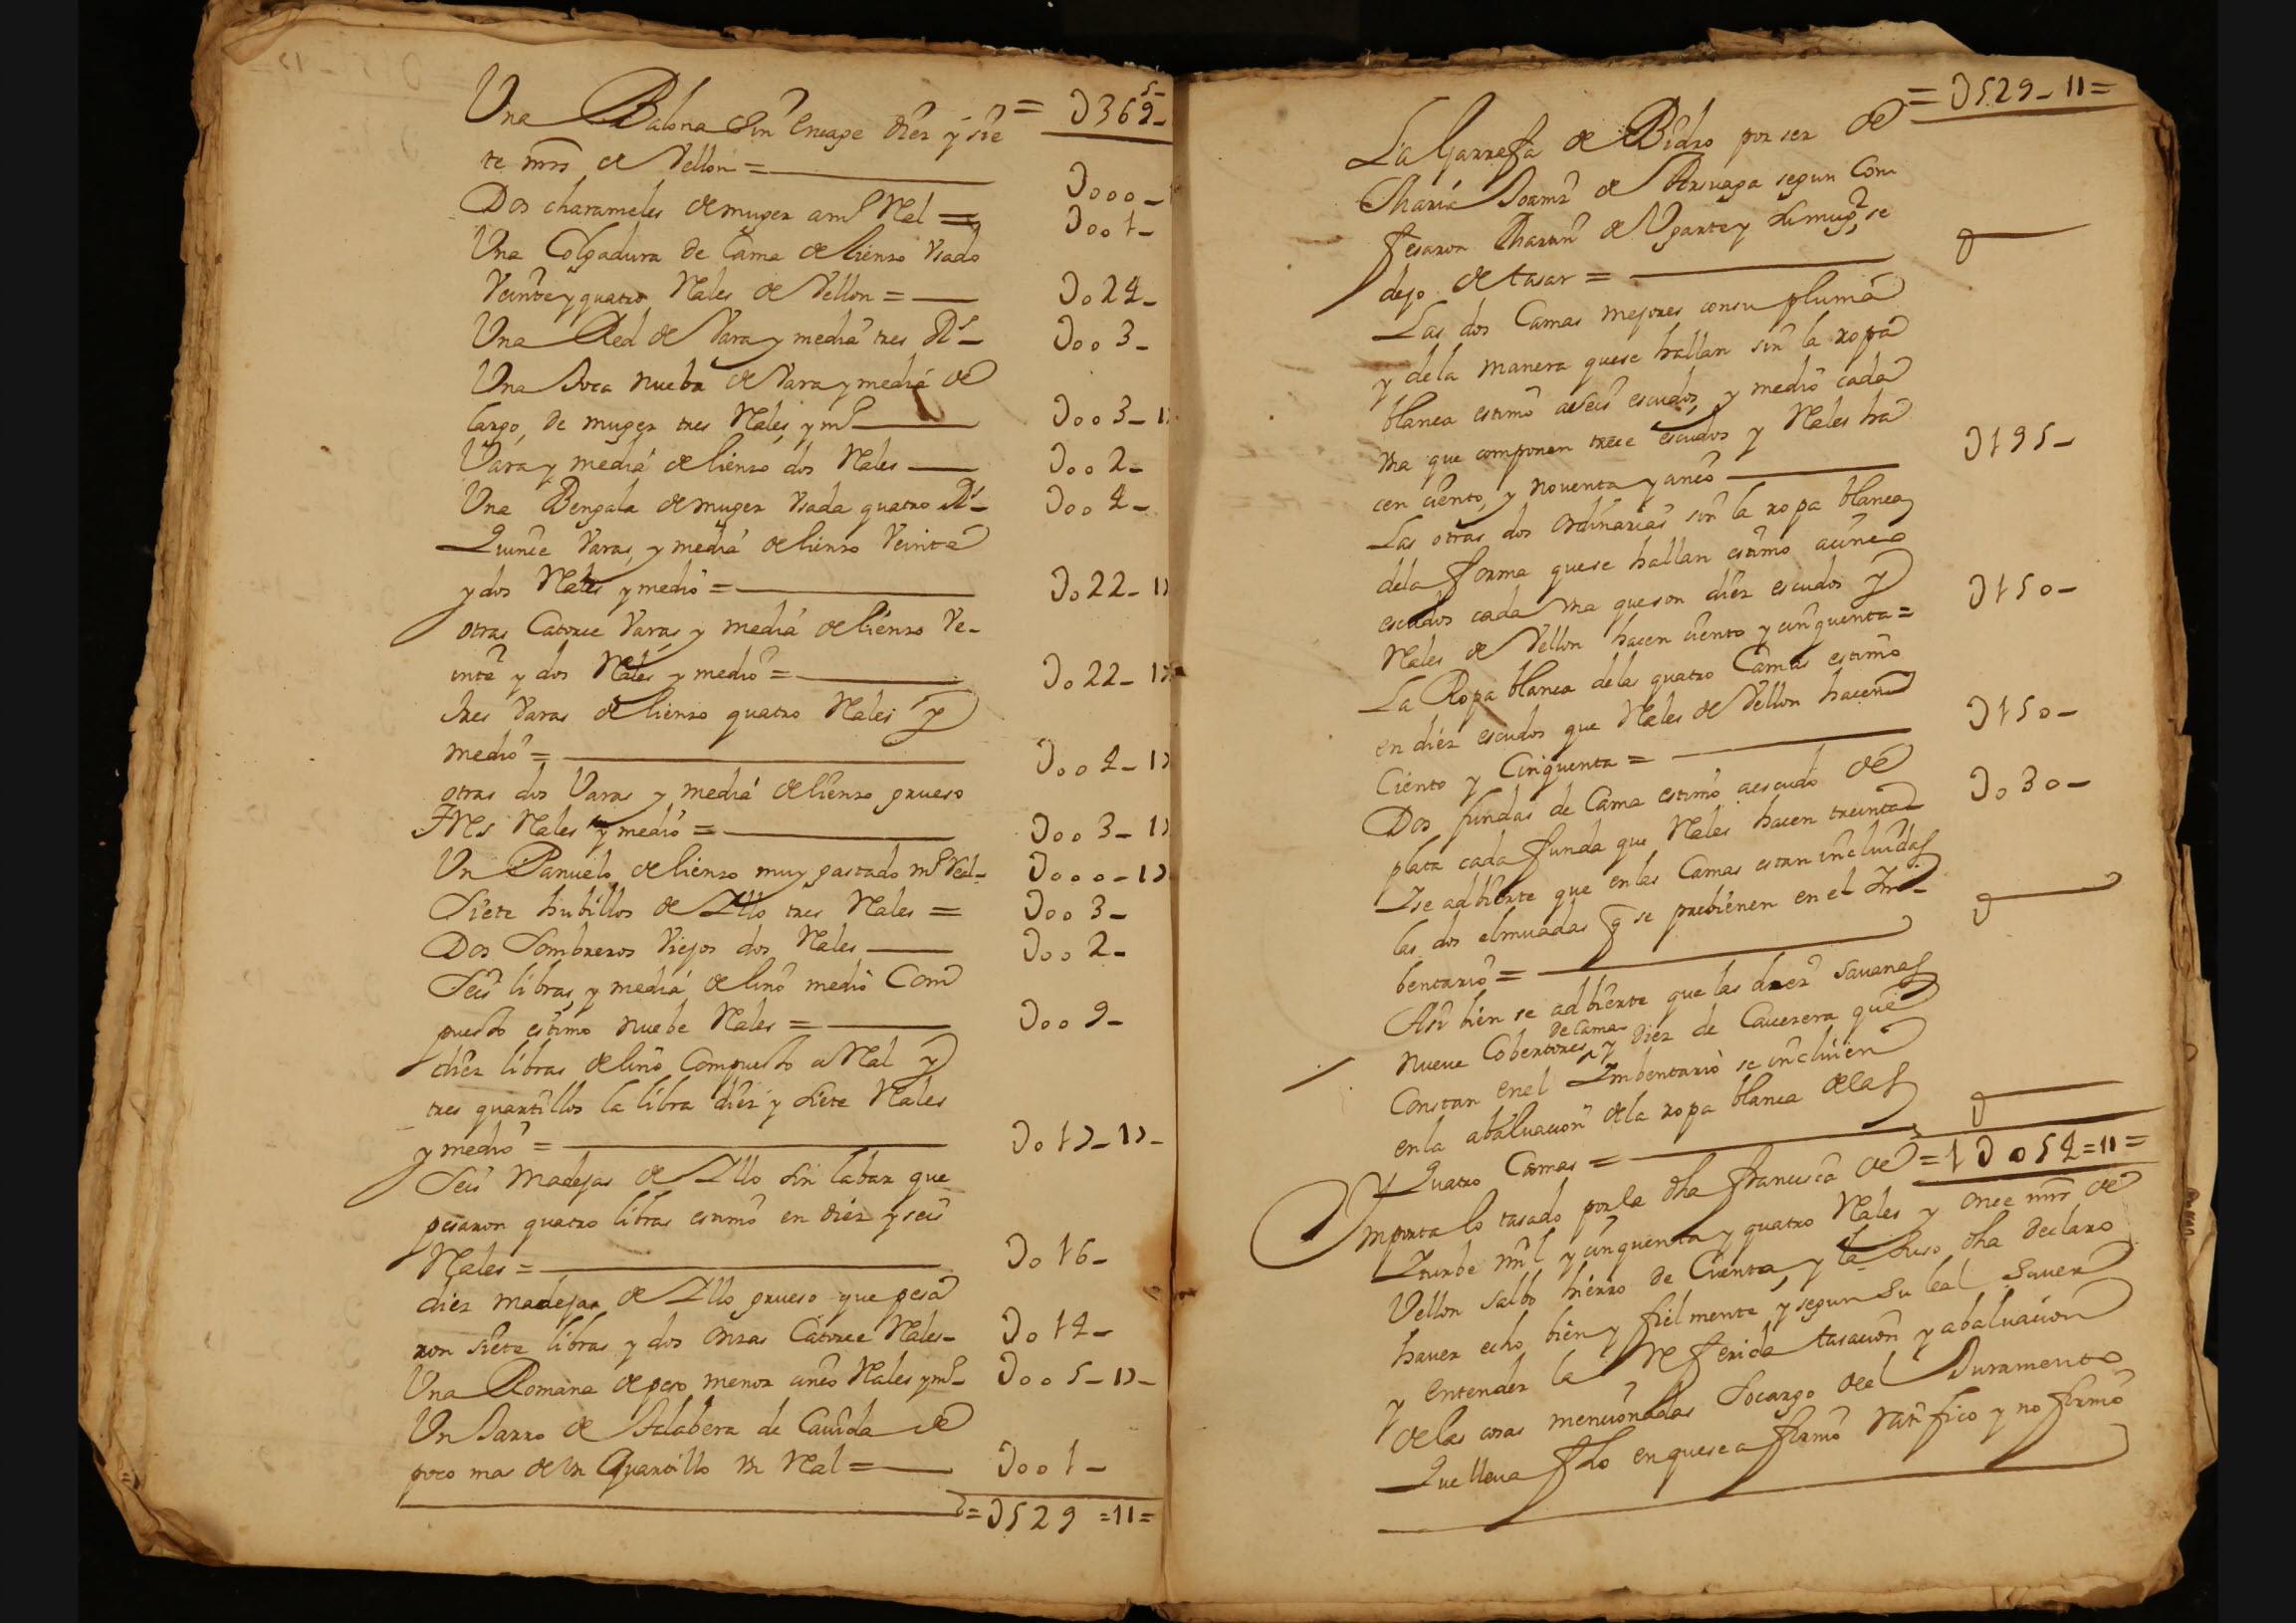 = U369_
Una Balona sin encage diez y sie
te mrs de Vellon = U000_1
Dos charameles de muger a mº Real = U001_
Una Colgadura de Cama de lienzo Usado
Veinte y quatro Reales de Vellon = U024_
Una Red de Vara y media tres Rs_ U003_
Una Toca nueba de Vara y media de
largo, de muger tres Reales, y mº U003_17
Vara y media de lienzo dos Reales U002_
Una Bengala de muger Usada quatro Rs_ U004_
Quince Varas, y media de lienzo Veinte
y dos Reales y medio = U022_17
otras Catorce Varas y media de lienzo Ve-
inte y dos Reales y medio = U022_17
tres Varas de lienzo quatro Reales y
medio = U004_17
otras dos Varas y media de lienzo grueso
tres Reales y medio = U003_17
Un Panuelo de lienzo muy gastado mº Real_ U000_17
Siete hubillos de Illo tres Reales = U003_
Dos Sombreros Viejos dos Reales U002_
Seis libras, y media de lino medio Com
puesto estimo nuebe Reales = U009_
diez libras de lino Compuesto a Real y
tres quartillos la libra diez y siete Reales
y medio = U017_17_
Seis Madejas de Illo sin labar que
pesaron quatro libras estimo en diez y seis
Reales = U016_
diez madejas de Illo grueso que pesa
ron siete libras y dos onzas Catorce Reales_ U014_
Una Romana de peso menor cinco Reales y mº_ U005_17_
Un Jarro de Talabera de Cavida de
poco mas de un Quartillo un Real = U001_
= U529 =11=
= U529_11=
La Garrafa de Bidro por ser de
Maria Joanna de Arsuaga segun Con
fesaron Martin de Ugarte y su muger, se
dejo de tasar =
Las dos Camas mejores con su pluma
y de la manera que se hallan sin la ropa
blanca estimo a seis escudos, y medio cada
una que componen trece escudos y Reales ha
cen ciento, y noventa y cinco U195_
Las otras dos ordinarias sin la ropa blanca
de la forma que se hallan estimo a cinco
escudos cada una que son diez escudos y
Reales de Vellon hacen ciento y cinquenta = U150_
La Ropa blanca de las quatro Camas estimo
en diez escudos que Reales de Vellon hacen
Ciento y Cinquenta = U150_
Dos fundas de Cama estimo a escudo de
plata cada funda que Reales hacen treinta U030_
Ise adbierte que en las Camas estan incluidas
las dos elmuadas q se prebienen en el In-
bentario =
Asi bien se adbierte que las diez savanas
nueve Cobertores de Cama y diez de Cavezera que
Constan en el Imbentario se incluien
en la abaluacion de la ropa blanca de las
Quatro Camas =
= 1U054=11=
Importa lo tasado por la dha Francisca de
Iturbe mil y cinquenta y quatro Reales y once mrs de
Vellon salbo hierro de Cuenta, y la suso dha declaro
haver echo bien y fielmente, y segun su leal saver
y entender la referida tasacion y abaluacion
de las cosas mencionadas Socargo del Juramento
Que lleva fho en que se afirmo ratifico y no firmo